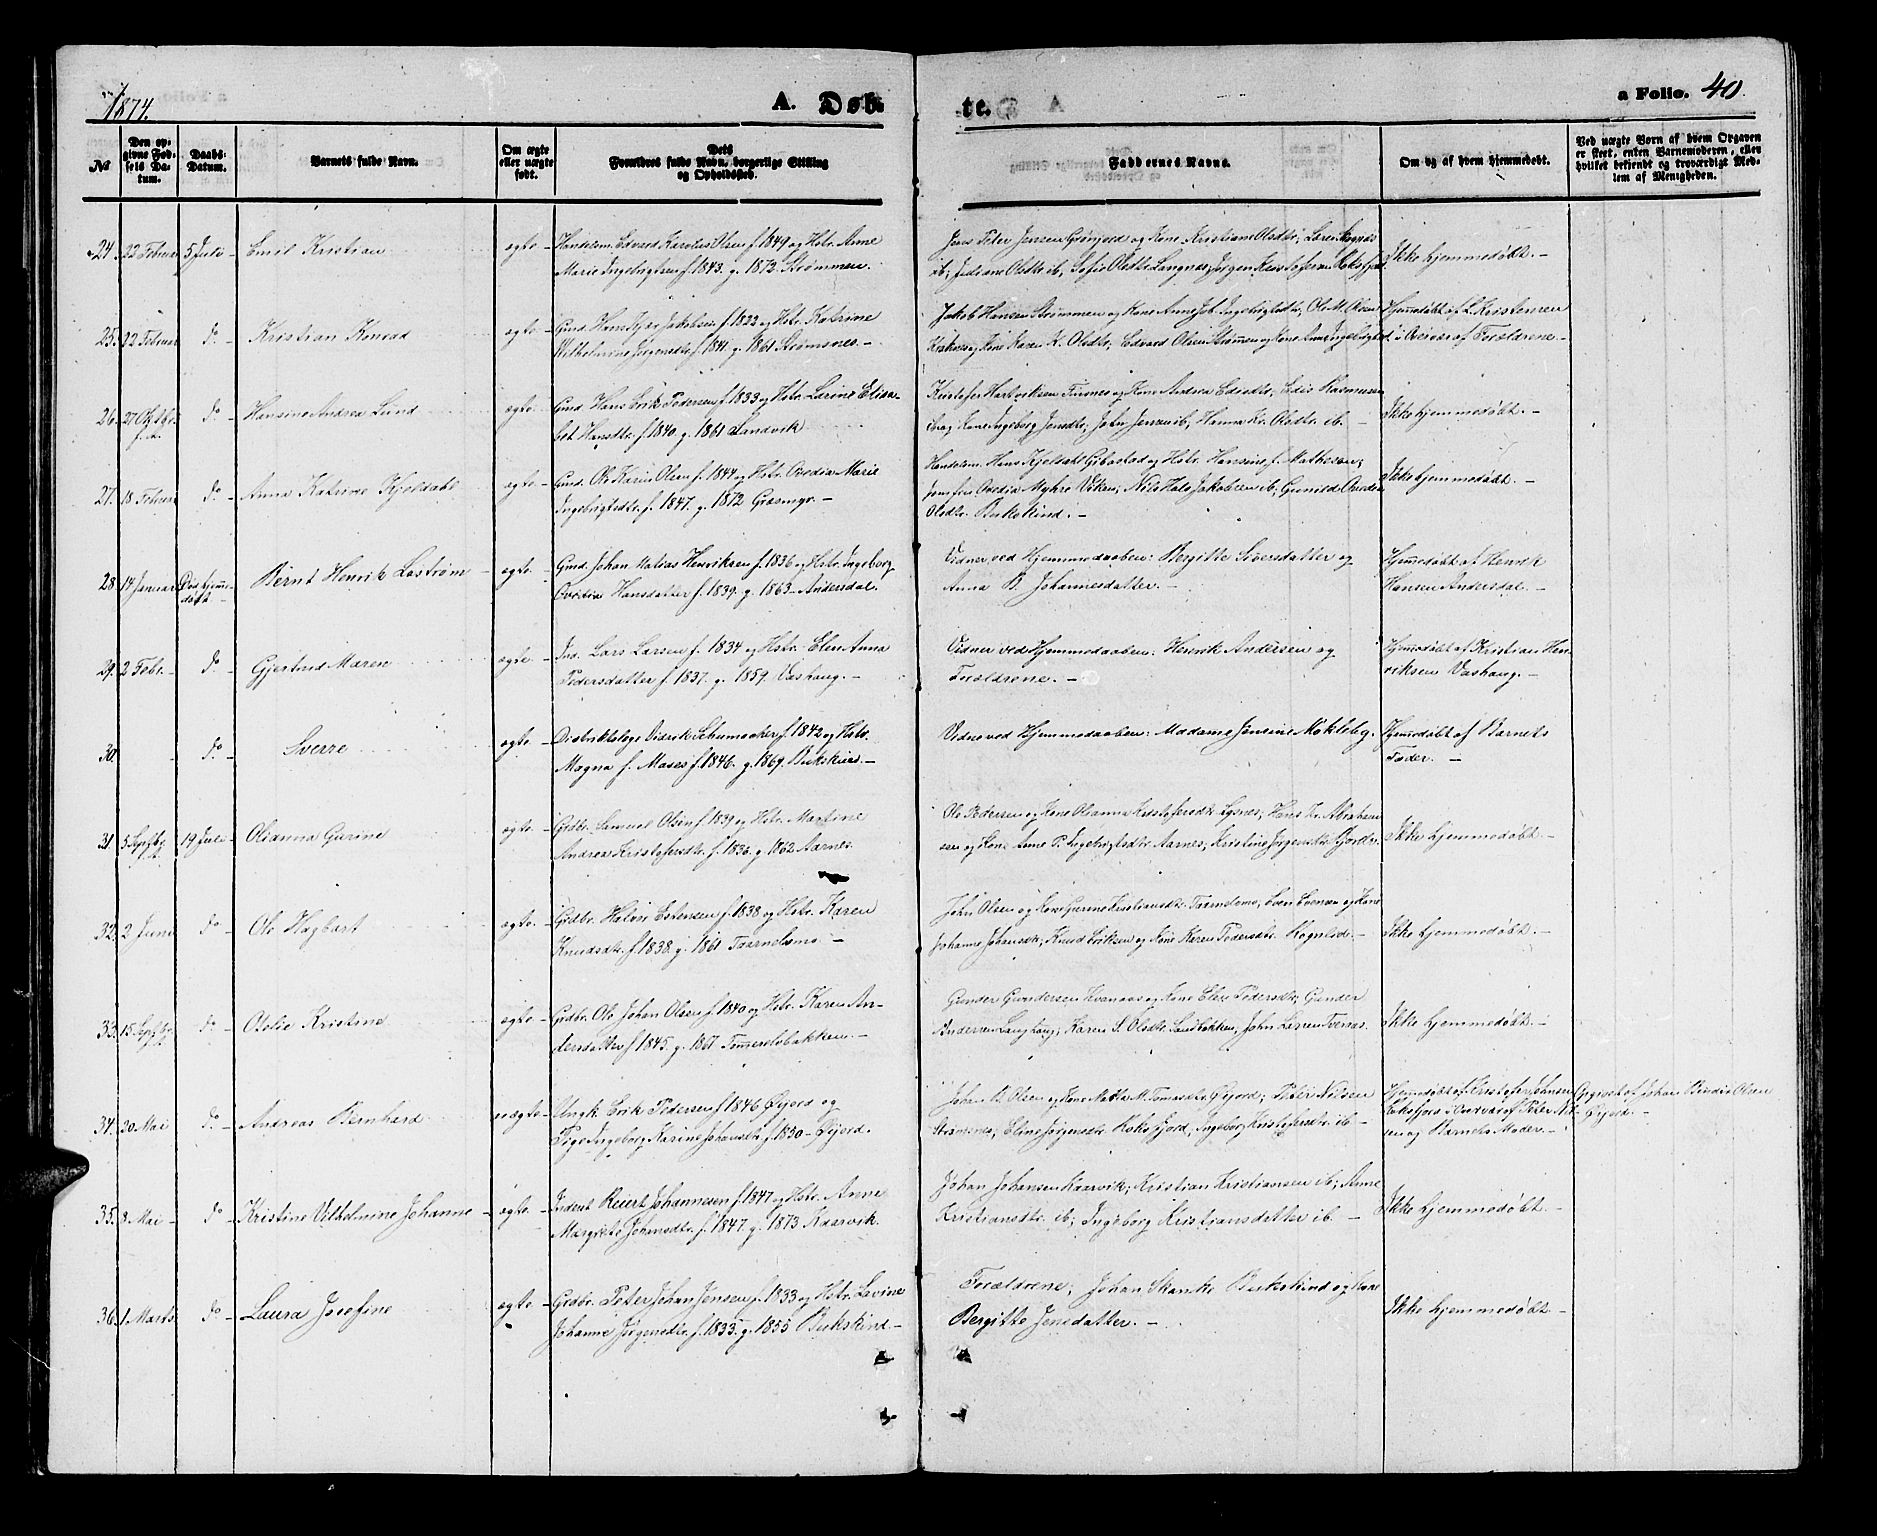 1874.
A. Døb
te.
a Folio. 40.
No
Den op-
givne Fød-
sels Da-
tum.
Daabs-
Datum.
Barnets fulde Navn.
Om ægte
eller uægte
født.
Dets
Forældres fulde Navn, borgerlige Stilling
og Opholdssted.
Faddernes Navne.
Om og af hvem hjemmedøbt.
Ved uægte Børn af hvem Opgaven
er skeet, enten Barnemoderen, eller
hvilket bekjendt og troværdigt Med-
lem af Menigheden.
24. 22 Februar 5 Juli Emil Kristian ægte Handelsm. Edvard Karolus Olsen f. 1849 og Hstr. Anne
Marie Ingebrigtsen f. 1843. g. 1872 Strømmen.
Jens Peter Jensen Grønjord og Kone Kristiane Olsdtr;
ib; Juliane Olsdtr ib; Sofie Olsdtr Langnes; Jørgen Kristofersen Kokofjord.
Ikke hjemmedøbt.
25. 22 Februar do Kristian Konrad ægte Gmd. Hans Kjær Jakobsen f. 1822 og Hstr. Katrine
Vilhelmine Jørgensdtr. f. 1841. g. 1861 Strømsnes.
Jakob Hansen Strømmen og Kone Anne Jek. Ingebrigtsdtr; Ole M. Olsen
og Kone Karen K. Olsdtr; Edvard Olsen Strømmen og Kone Anne Ingebrigtsd
Hjemmedøbt af L. Kristensen
i Overvær af Forældrene.
26. 27 Oktbr. f. A. do Hansine Andrea Lund ægte. Gmd. Hans Erik Pedersen f. 1833 og Hstr. Larine Elisa-
bet Hansdtr. f. 1840. g. 1861 Sandvik
Kristofer Hartviksen Finnes og Kone Andrea Edisdtr; Edis Rasmussen
ib og Kone Ingeborg Jensdtr; John Jensen ib; Hanna Kr. Olsdtr ib.
Ikke hjemmedøbt.
27. 18 Februar do Anna Katrine Kjeldahl ægte Gmd. Ole Karius Olsen f. 1844 og Hstr. Ovedia Marie
Ingebrigtsdtr. f. 1847. g. 1872 Græsmyr.
Handelsm. Hans Kjeldahl Gibostad og Hstr. Hansine f. Mathesen;
Jomfru Ovedia Myhre Viken; Nils Hals Jakobsen ib; Gunild Ovedia
Olsdtr. Bukskind.
Ikke hjemmedøbt.
28. 14 Januar Død hjemmedøbt Bernt Henrik Løstrøm ægte. Gmd. Johan Matias Henriksen f. 1836 og Hstr. Ingeborg
Ovedia Hansdatter f. 1839. g. 1863 Andersdal.
Vidner ved Hjemmedaaben: Bergitte Siversdatter og
Anna B. Johannesdatter.
Hjemmedøbt af Henrik
Hansen Andersdal.
29. 2 Febr. do Gjertrud Maren ægte Ind. Lars Larsen f. 1834 og Hstr. Elen Anna
Pedersdatter f. 1837. g. 1859. Vashaug.
Vidner ved Hjemmedaaben: Henrik Andersen og
Forældrene.
Hjemmedøbt af Kristian Hen-
riksen Vashaug.
30. do Sverre ægte Distriktslæge Vidrik Schumacher f. 1842 og Hstr.
Magna f. Moses f. 1846. g. 1869. Bukskind.
Vidne ved Hjemmedaaben: Madame Jensine Møkleby.
Hjemmedøbt af Barnets
Fader.
31. 5 Septbr. f. A. 19 Juli Olianna Gurine ægte Grdbr. Samuel Olsen f. 1839 og Hstr. Martine
Andrea Kristofersdtr. f. 1836. g. 1862 Aarnes.
Ole Pedersen og Kone Olianna Kristofersdtr. Lysnes; Hans Kr. Abraham-
sen og Kone Anne P. Ingebrigtsdtr. Aarnes; Kristine Jørgensdtr.
Ikke hjemmedøbt.
32. 2 Juni do Ole Hagbart ægte. Grdbr. Halvor Estensen f. 1838 og Hstr. Karen
Knudsdtr. f. 1838. g. 1861 Taarnelvmo
John Olsen og Kone Gurine Kristiansdtr. Taarnelvmo; Sven Svensen og Kone
Johanne Johansdtr; Knud Eriksen og Kone Karen Pedersdtr. Rognlid.
Ikke hjemmedøbt.
33. 15 Septbr. f. A. do Otelie Kristine ægte Grdbr. Ole Johan Olsen f. 1840 og Hstr. Karen An-
dersdatter f. 1845. g. 1867 Tømmerelvbakken.
Gunder Gundersen Kvanaas og Kone Elen Pedersdtr; Gunder
Andersen Langhaug; Karen S. Olsdtr. Sandbakken; John Larsen Tvernes.
Ikke hjemmedøbt.
34. 20 Mai do Andreas Bernhard uægte Ungk. Erik Pedersen f. 1846 Øijord og
Pige Ingeborg Karine Johansdtr. f. 1850 Øijord.
Johan B. Olsen og Kone Marta M. Tomasdtr. Øijord; Peter Nilsen
Strømnes; Eline Jørgensdtr. Kokofjord; Ingeborg Kristofersdtr. ib
Hjemmedøbt af Kristofer Johansen
Kokofjord i Overvær af Peter Nil-
sen og Barnets Moder.
Opgivet af Johan Bendix Olsen
Øijord.
35. 8 Mai do Kristine Vilhelmine Johanne ægte. Inderst Reiert Johannesen f. 1847 og Hstr. Anne
Margrete Johansdtr. f. 1847. g. 1873 Kaarvik.
Johan Johansen Kaarvik; Kristian Kristiansen ib; Anne
Kristiansdtr. ib; Ingeborg Kristiansdatter ib.
Ikke hjemmedøbt.
36. 1 Marts do Laura Josefine ægte. Grdbr. Peter Johan Jensen f. 1833 og Hstr. Lavine
Johanne Jørgensdtr. f. 1833. g. 1855 Bukskind
Forældrene; Johan Skanke Bukskind og Kone
Bergitte Jensdatter.
Ikke hjemmedøbt